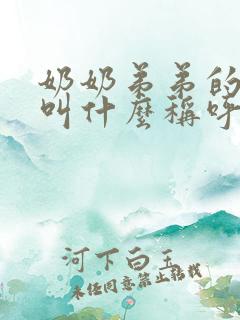 奶奶弟弟的
叫什麼稱呼
河下白玉
未经同意禁止转载